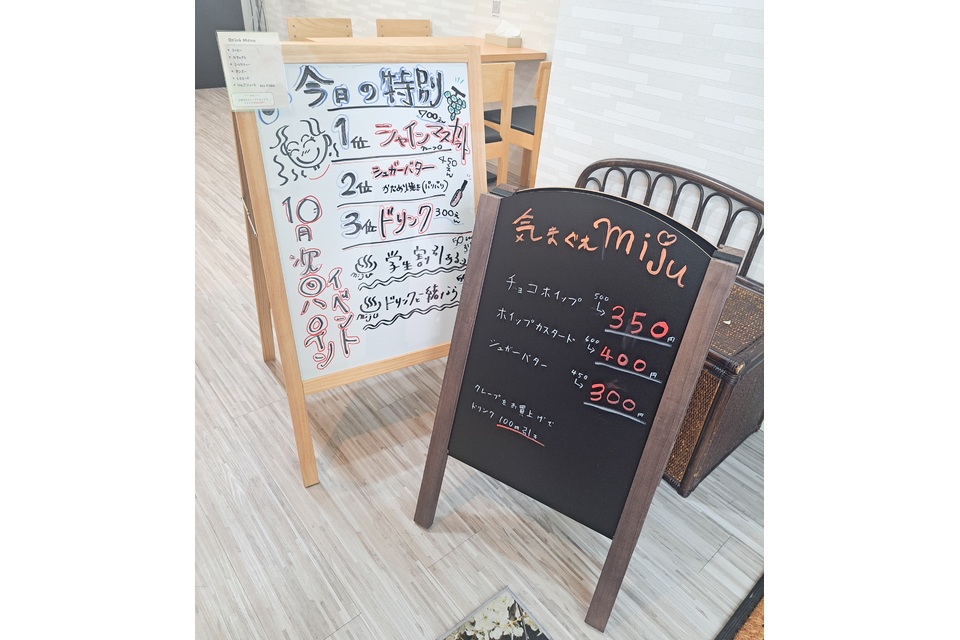 Drink Menu
今日の特別
700えん
1位 シャインマスカット
クレープ
450えん
シュガーバター
2位 かためり焼き(パリパリ)
3位 ドリンク 300えん
miju 学生割引ある
miju ドリンクと一緒なら
10月
次〇ハロイン
イベント
気まぐれ miju
チョコホイップ 500 350円
ホイップカスタード 600 400円
シュガーバター 450 300円
クレープをお買上げで
ドリンク100円引き